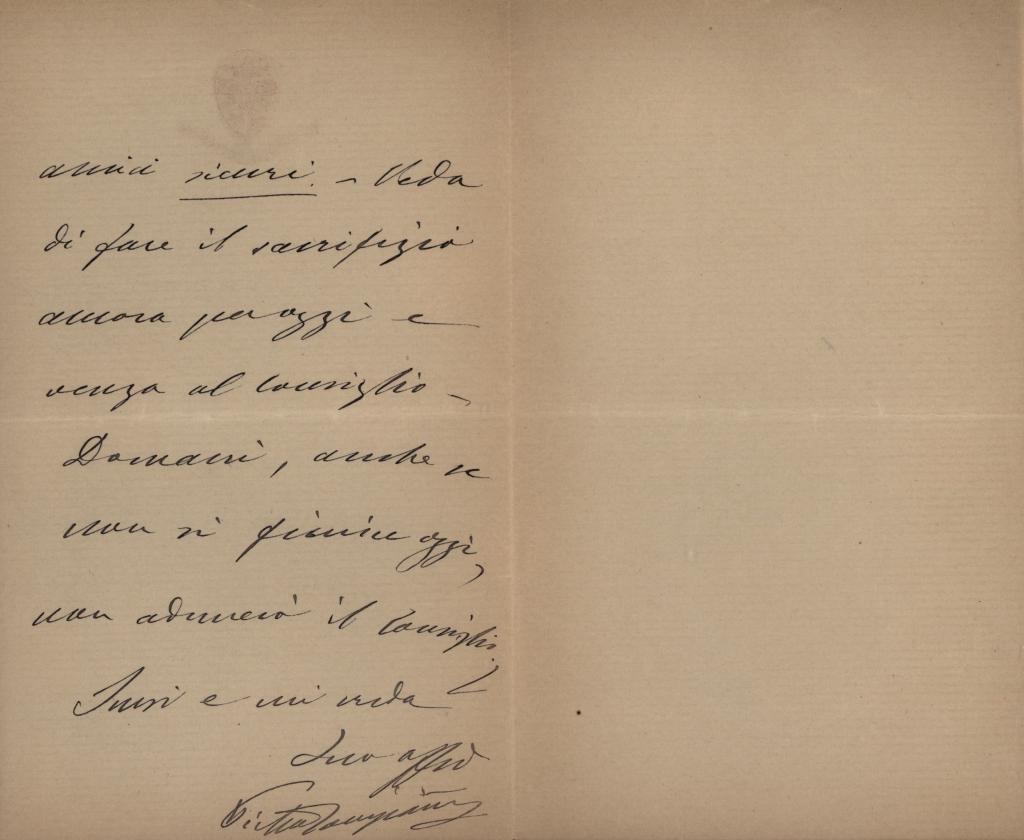 amici sicuri. – Veda
di fare il sacrifizio
ancora per oggi e
venga al Consiglio –
Domani, anche se
non si finisce oggi,
non adunerò il Consiglio.
Scusi e mi creda
Suo affmo